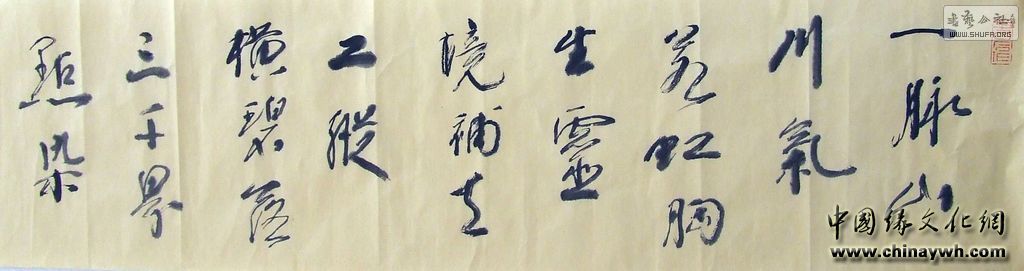 一脉山
川氣
若虹胸
生靈
境補天
工縱
橫碧落
三千界
點染
书艺公社
WWW.SHUFA.ORG
中國緣文化網
www.chinaywh.com